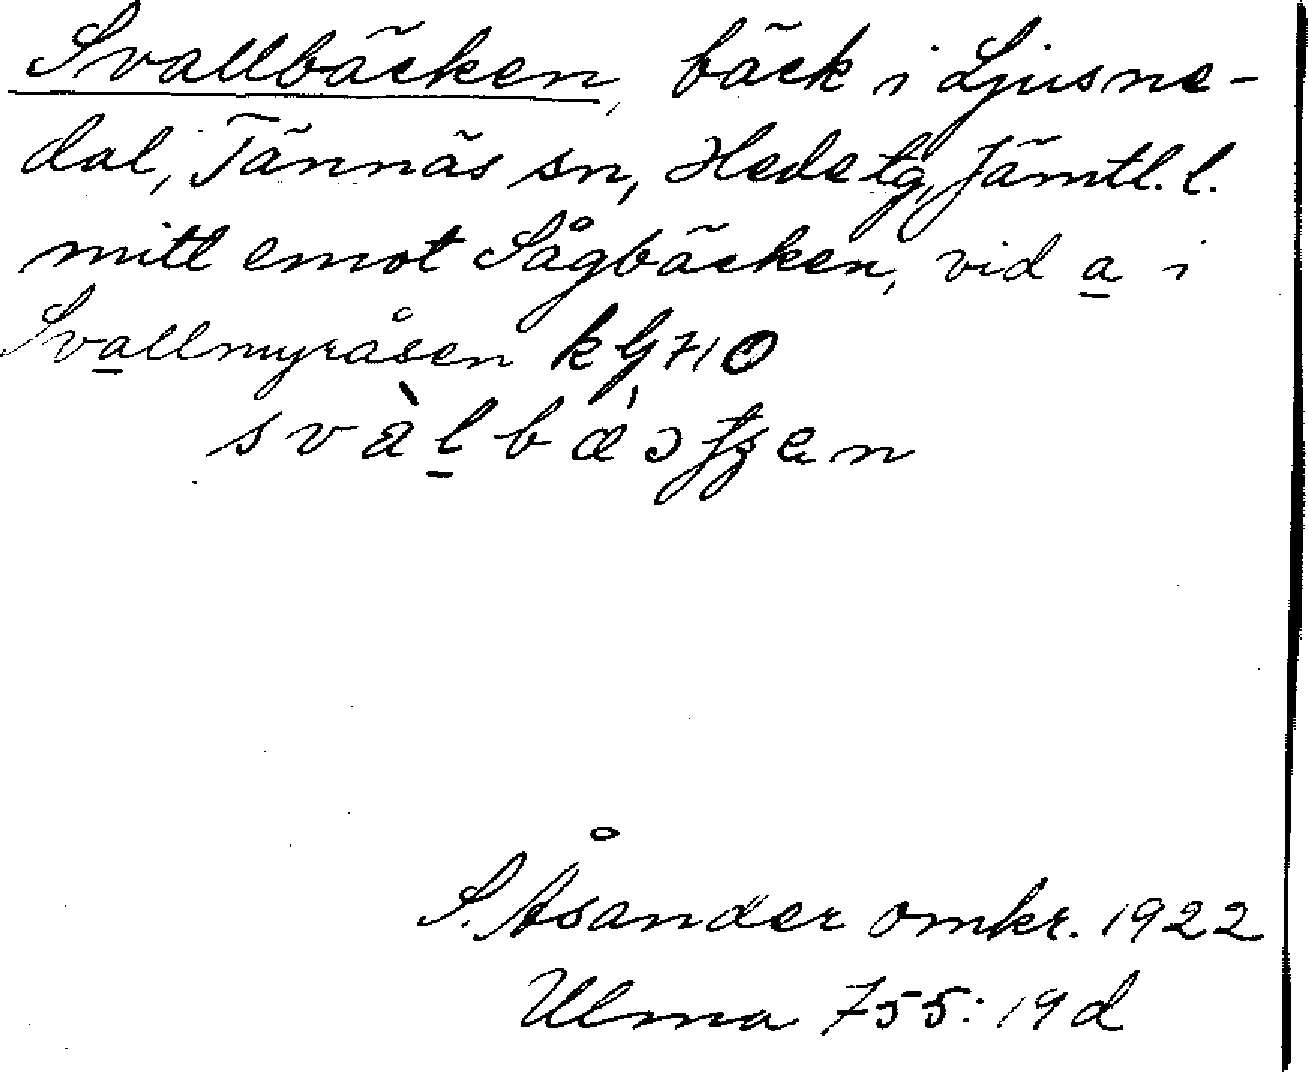 Svallbäcken, bäck i Ljusne-
dal, Tännäs sn, Hede tg, Jämtl. l.
mitt emot Sågbäcken, vid a i
Svallmyråsen k G 710
S. Åsander omkr. 1922
Ulma 755:19d